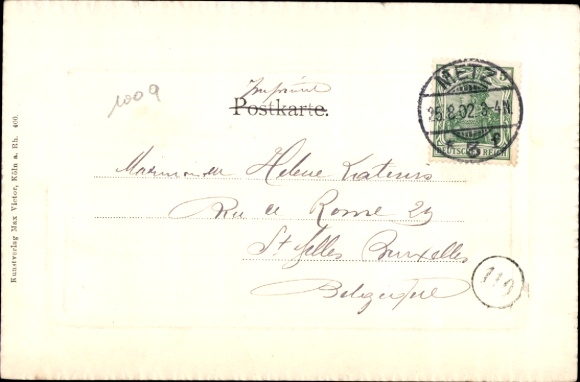 1009
Imprimé
Postkarte.
METZ
25.8.02.3-4N
* 3 f
5
DEUTSCHES REICH
Mademoiselle Helene
Rue de Rome 29
St Gilles Bruxelles
Belgique
119
Kunstverlag Max Victor, Köln a. Rh. 400.